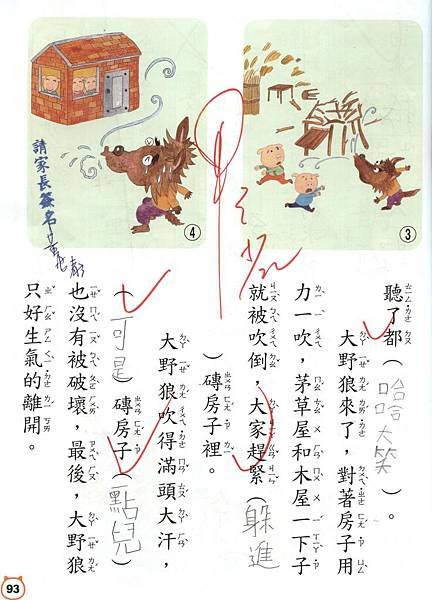 ④
③
請家長簽名
聽了都(哈哈大笑)。
大野狼來了，對著房子用
力一吹，茅草屋和木屋一下子
就被吹倒，大家趕緊(躲進
)磚房子裡。
大野狼吹得滿頭大汗，
(可是)磚房子(一點兒)
也沒有被破壞，最後，大野狼
只好生氣的離開。
93